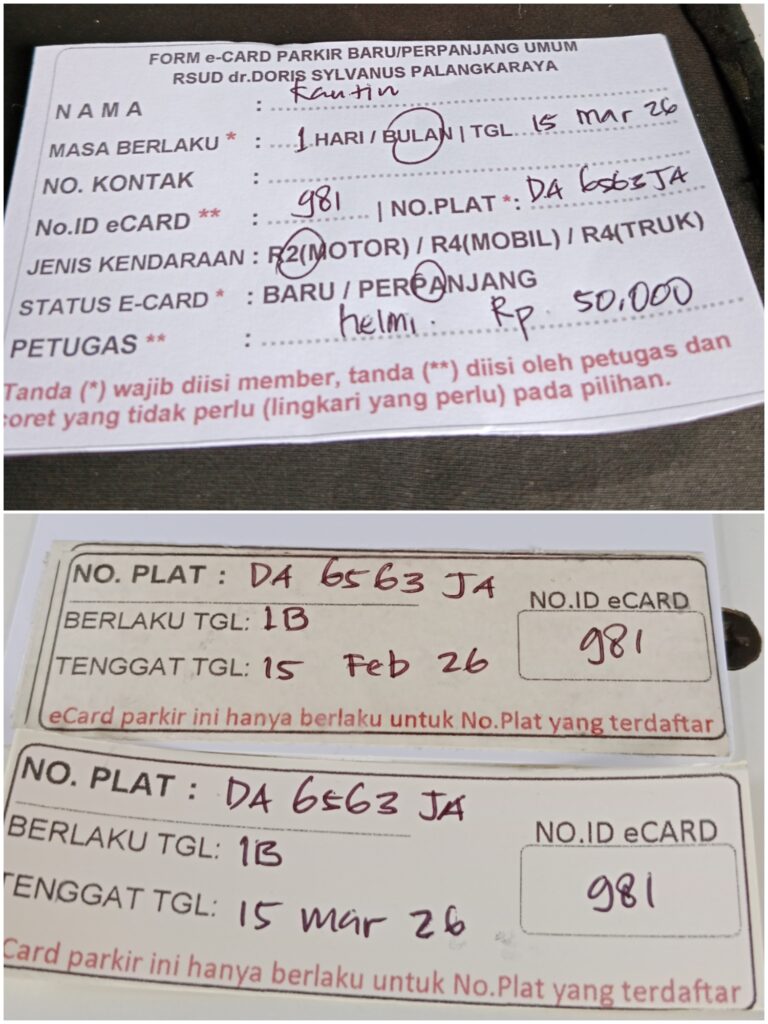 FORM e-CARD PARKIR BARU/PERPANJANG UMUM
RSUD dr.DORIS SYLVANUS PALANGKARAYA
NAMA : Kantin
MASA BERLAKU * : 1 HARI / BULAN | TGL 15 Mar 26
NO. KONTAK :
No.ID eCARD ** : 981 | NO.PLAT *: DA 6563 JA
JENIS KENDARAAN : R2(MOTOR) / R4(MOBIL) / R4(TRUK)
STATUS E-CARD * : BARU / PERPANJANG
PETUGAS ** : helmi. Rp. 50.000
Tanda (*) wajib diisi member, tanda (**) diisi oleh petugas dan
coret yang tidak perlu (lingkari yang perlu) pada pilihan.
NO. PLAT : DA 6563 JA
BERLAKU TGL: 1B
TENGGAT TGL: 15 Feb 26
NO.ID eCARD
981
eCard parkir ini hanya berlaku untuk No.Plat yang terdaftar
NO. PLAT : DA 6563 JA
BERLAKU TGL: 1B
TENGGAT TGL: 15 Mar 26
NO.ID eCARD
981
Card parkir ini hanya berlaku untuk No.Plat yang terdaftar